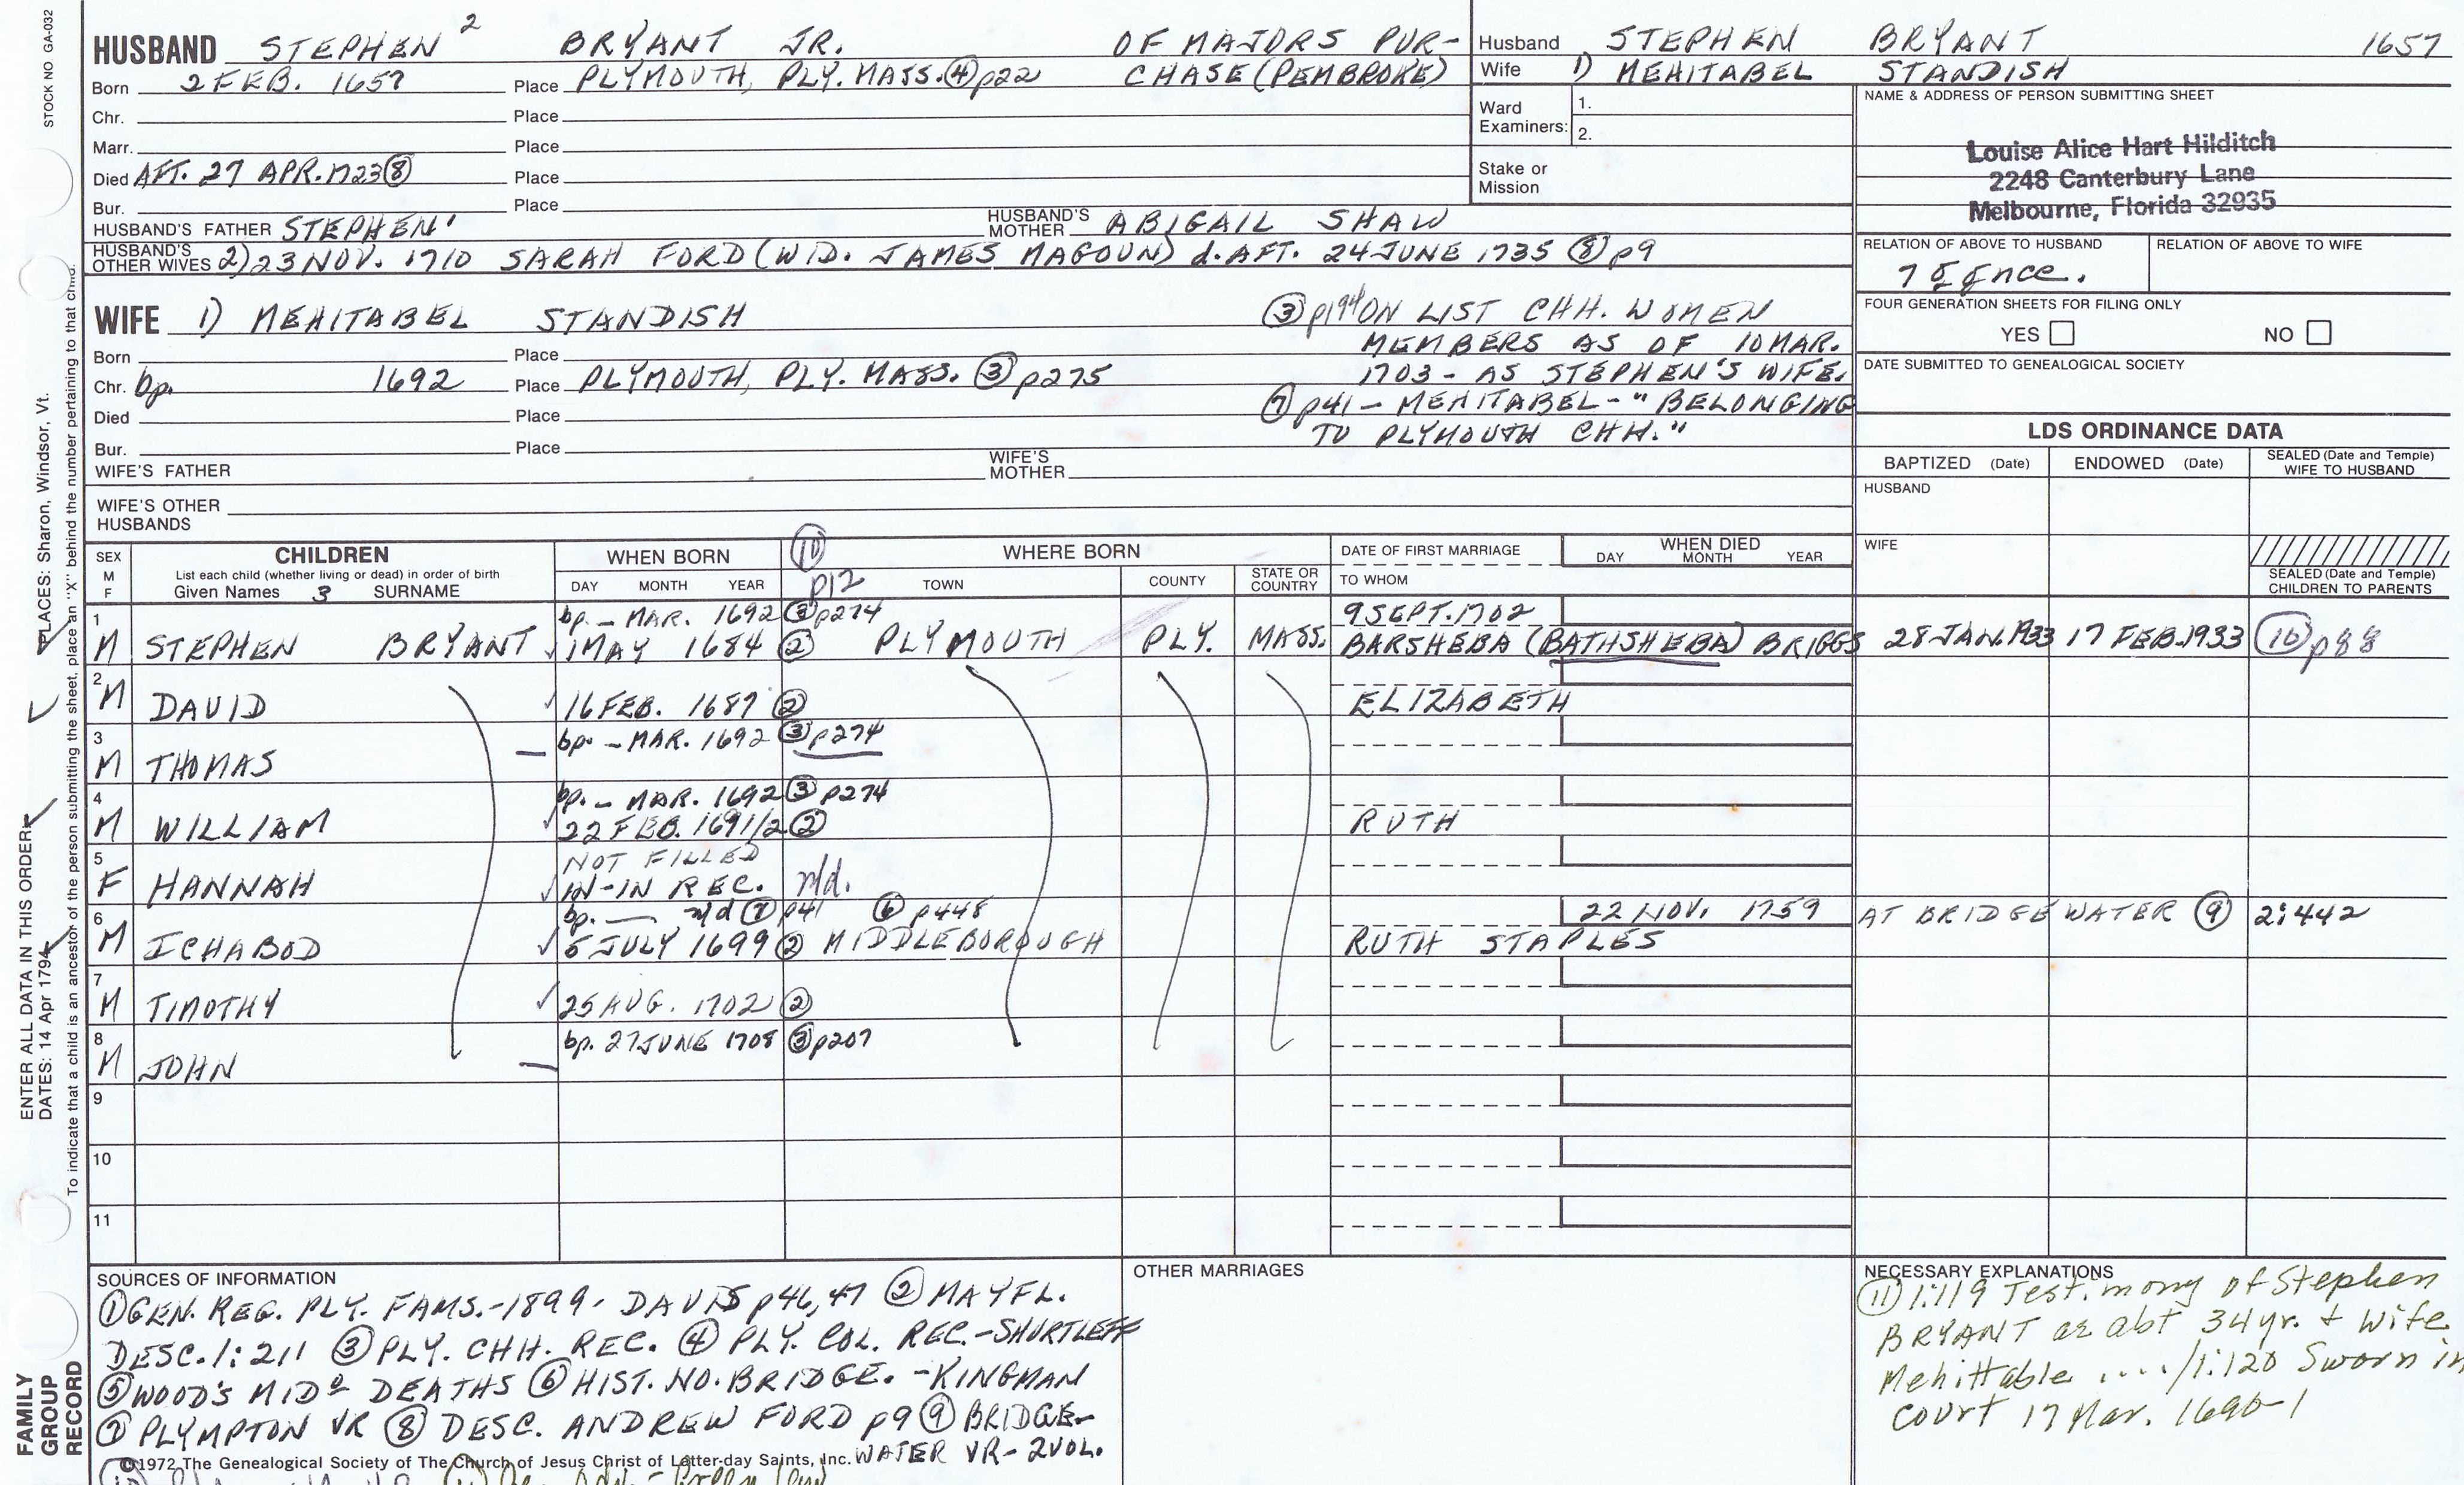 STOCK NO GA-032
HUSBAND STEPHEN 2 BRYANT JR. OF MAJORS PUR-
Born 2 FEB. 1657 Place PLYMOUTH, PLY. MASS. ④ p22 CHASE (PEMBROKE)
Chr. Place
Marr. Place
Died AFT. 27 APR. 1723 ⑧ Place
Bur. Place
HUSBAND'S FATHER STEPHEN' HUSBAND'S MOTHER ABIGAIL SHAW
HUSBAND'S OTHER WIVES 2) 23 NOV. 1710 SARAH FORD (WID. JAMES MAGOUN) d. AFT. 24 JUNE 1735 ⑧ p9
Husband STEPHEN BRYANT 1657
Wife 1) MEHITABEL STANDISH
Ward Examiners: 1.
2.
Stake or Mission
NAME & ADDRESS OF PERSON SUBMITTING SHEET
Louise Alice Hart Hilditch
2248 Canterbury Lane
Melbourne, Florida 32935
RELATION OF ABOVE TO HUSBAND RELATION OF ABOVE TO WIFE
FOUR GENERATION SHEETS FOR FILING ONLY
YES NO
DATE SUBMITTED TO GENEALOGICAL SOCIETY
WIFE 1) MEHITABEL STANDISH
Born Place
Chr. bp. 1692 Place PLYMOUTH, PLY. MASS. ③ p275
Died Place
Bur. Place
WIFE'S FATHER WIFE'S MOTHER
WIFE'S OTHER HUSBANDS
③ p194 ON LIST CHH. WOMEN
MEMBERS AS OF 10 MAR.
1703 - AS STEPHEN'S WIFE.
⑦ p41 - MEHITABEL - "BELONGING
TO PLYMOUTH CHH."
LDS ORDINANCE DATA
BAPTIZED (Date) ENDOWED (Date) SEALED (Date and Temple) WIFE TO HUSBAND
HUSBAND
WIFE
SEALED (Date and Temple) CHILDREN TO PARENTS
SEX M F
CHILDREN
List each child (whether living or dead) in order of birth
Given Names 3 SURNAME
WHEN BORN
DAY MONTH YEAR
⑩ p12
WHERE BORN
TOWN COUNTY STATE OR COUNTRY
DATE OF FIRST MARRIAGE
TO WHOM
WHEN DIED
DAY MONTH YEAR
1 bp. - MAR. 1692 ③ p274 9 SEPT. 1702
M STEPHEN BRYANT ✓ 1 MAY 1684 ② PLYMOUTH PLY. MASS. BARSHEBA (BATHSHEBA) BRIGGS 28 JAN. 1933 17 FEB. 1933 ⑩ p88
2
M DAVID ✓ 16 FEB. 1687 ② ELIZABETH
3 bp. - MAR. 1692 ③ p274
M THOMAS
4 bp. - MAR. 1692 ③ p274
M WILLIAM ✓ 22 FEB. 1691/2 ② RUTH
5 NOT FILLED
F HANNAH ✓ IN-IN REC. n/d.
6 bp. — n/d ⑦ p41 ⑥ p448 22 NOV. 1759 AT BRIDGEWATER ⑨ 2:442
M ICHABOD ✓ 5 JULY 1699 ② MIDDLEBOROUGH RUTH STAPLES
7
M TIMOTHY ✓ 25 AUG. 1702 ②
8 bp. 27 JUNE 1708 ③ p207
M JOHN
9
10
11
SOURCES OF INFORMATION
① GEN. REG. PLY. FAMS. - 1899 - DAVIS p46,47 ② MAYFL.
DESC. 1:211 ③ PLY. CHH. REC. ④ PLY. COL. REC. - SHURTLEFF
⑤ WOOD'S MIDD DEATHS ⑥ HIST. NO. BRIDGE. - KINGMAN
⑦ PLYMPTON VR ⑧ DESC. ANDREW FORD p9 ⑨ BRIDGE-
WATER VR - 2 VOL.
©1972 The Genealogical Society of The Church of Jesus Christ of Latter-day Saints, Inc.
OTHER MARRIAGES
NECESSARY EXPLANATIONS
⑪ 1:119 Testimony of Stephen
BRYANT ae abt 34 yr. + wife
Mehittable .... / 1:120 Sworn in
court 17 Mar. 1690-1
ENTER ALL DATA IN THIS ORDER
PLACES: Sharon, Windsor, Vt.
DATES: 14 Apr 1794
To indicate that a child is an ancestor of the person submitting the sheet, place an "X" behind the number pertaining to that child.
FAMILY GROUP RECORD